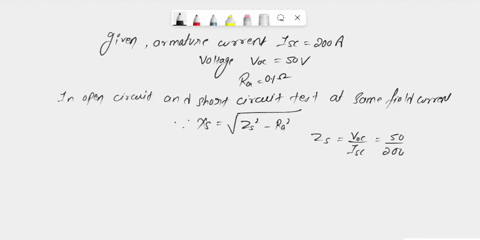 Given, armature current Isc = 200 A
Voltage Voc = 50 V
Ra = 0.1 Ω
In open circuit and short circuit test at same field current
∵ Xs = √(Zs² − Ra²)
Zs = Voc/Isc = 50/200